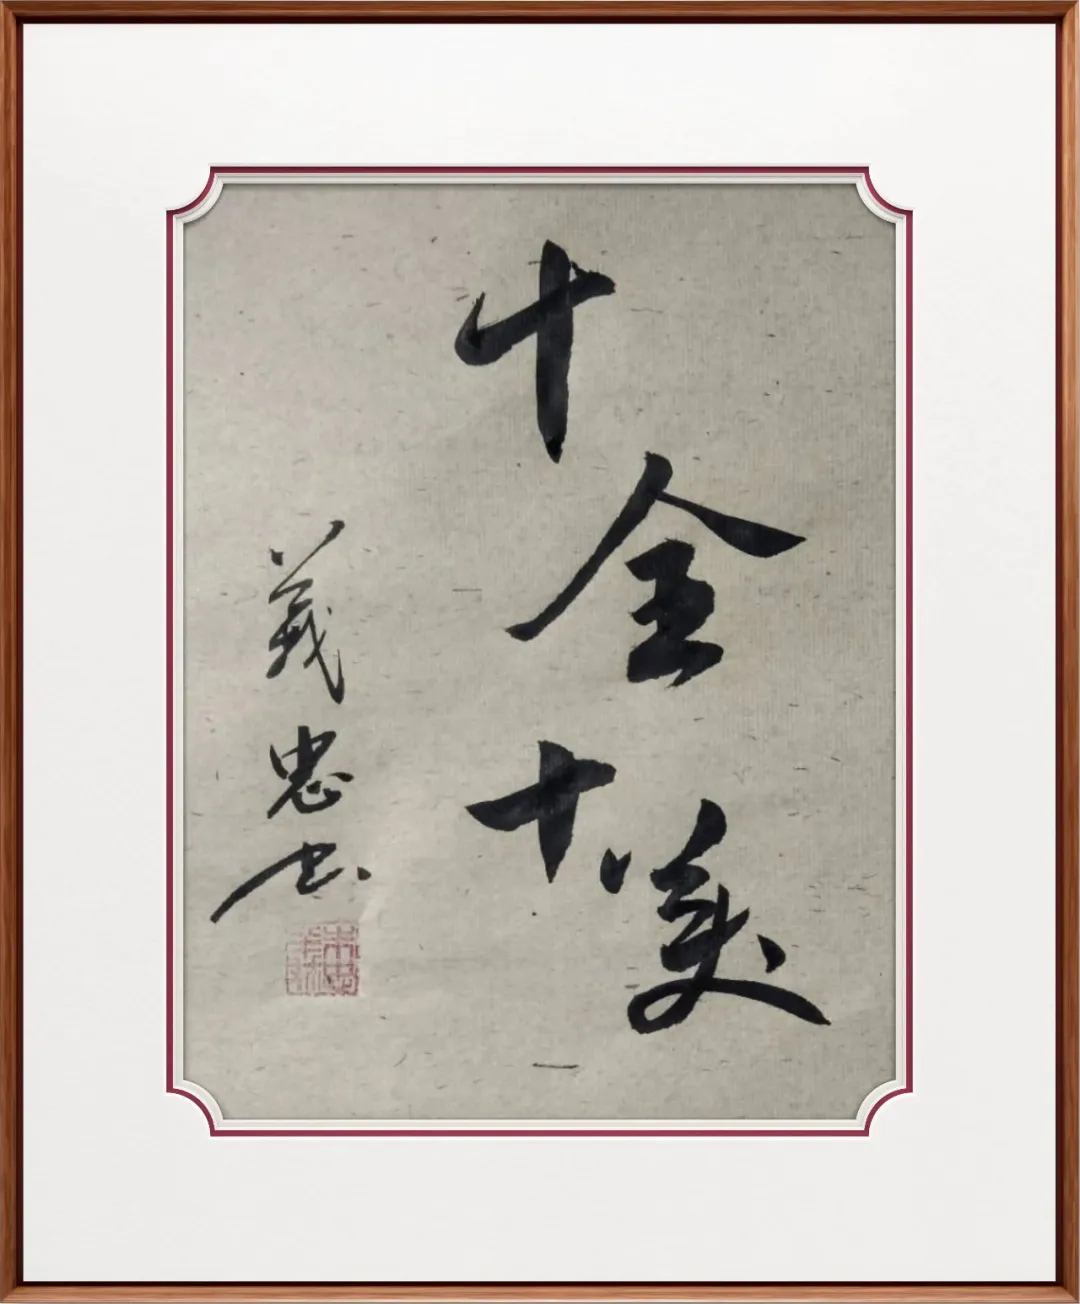 十全十美
義忠书